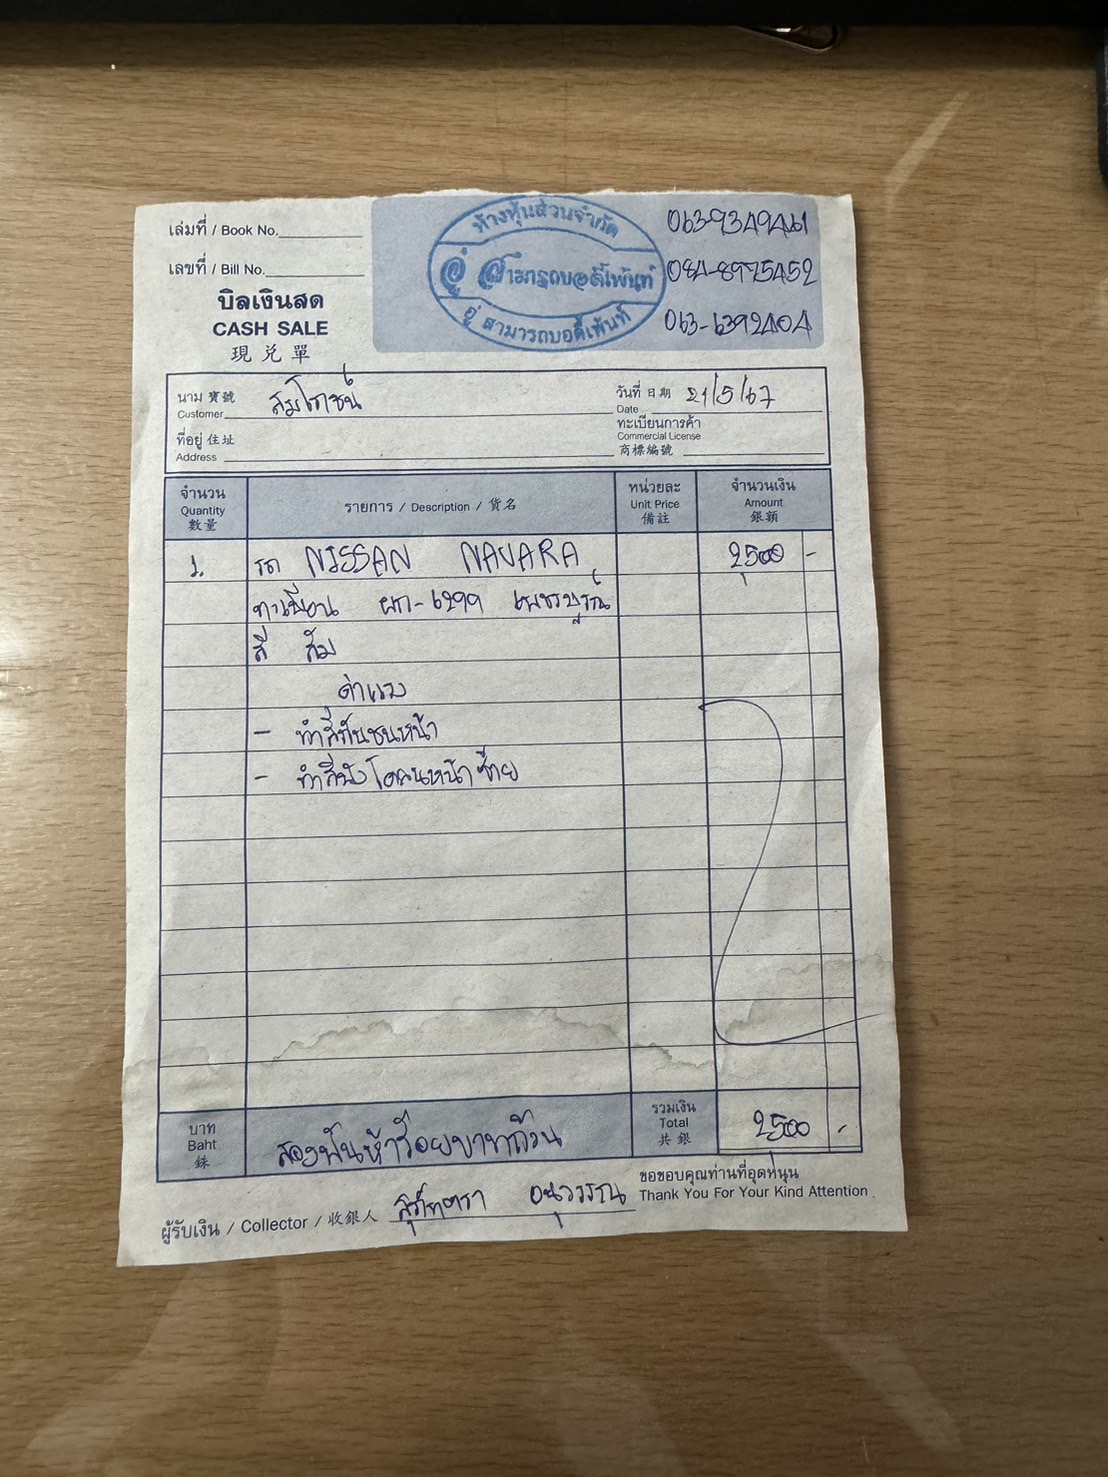 เล่มที่ / Book No.
เลขที่ / Bill No.
บิลเงินสด
CASH SALE
現兌單
ห้างหุ้นส่วนจำกัด
อู่ สามารถบอดี้เพ้นท์
อู่ สามารถบอดี้เพ้นท์
063-9349461
084-8975452
063-6392404
นาม 寶號 สมโภชน์
Customer
วันที่ 日期 21/5/67
Date
ที่อยู่ 住址
Address
ทะเบียนการค้า
Commercial License
商標編號
จำนวน
Quantity
數量
รายการ / Description / 貨名
หน่วยละ
Unit Price
備註
จำนวนเงิน
Amount
銀額
1. รถ NISSAN NAVARA 2,500 -
ทะเบียน ผก-6299 เพชรบูรณ์
สี ส้ม
ค่าแรง
- ทำสีกันชนหน้า
- ทำสีบังโคลนหน้าซ้าย
บาท
Baht
銖
สองพันห้าร้อยบาทถ้วน
รวมเงิน
Total
共銀
2,500 -
ขอขอบคุณท่านที่อุดหนุน
Thank You For Your Kind Attention
ผู้รับเงิน / Collector / 收銀人